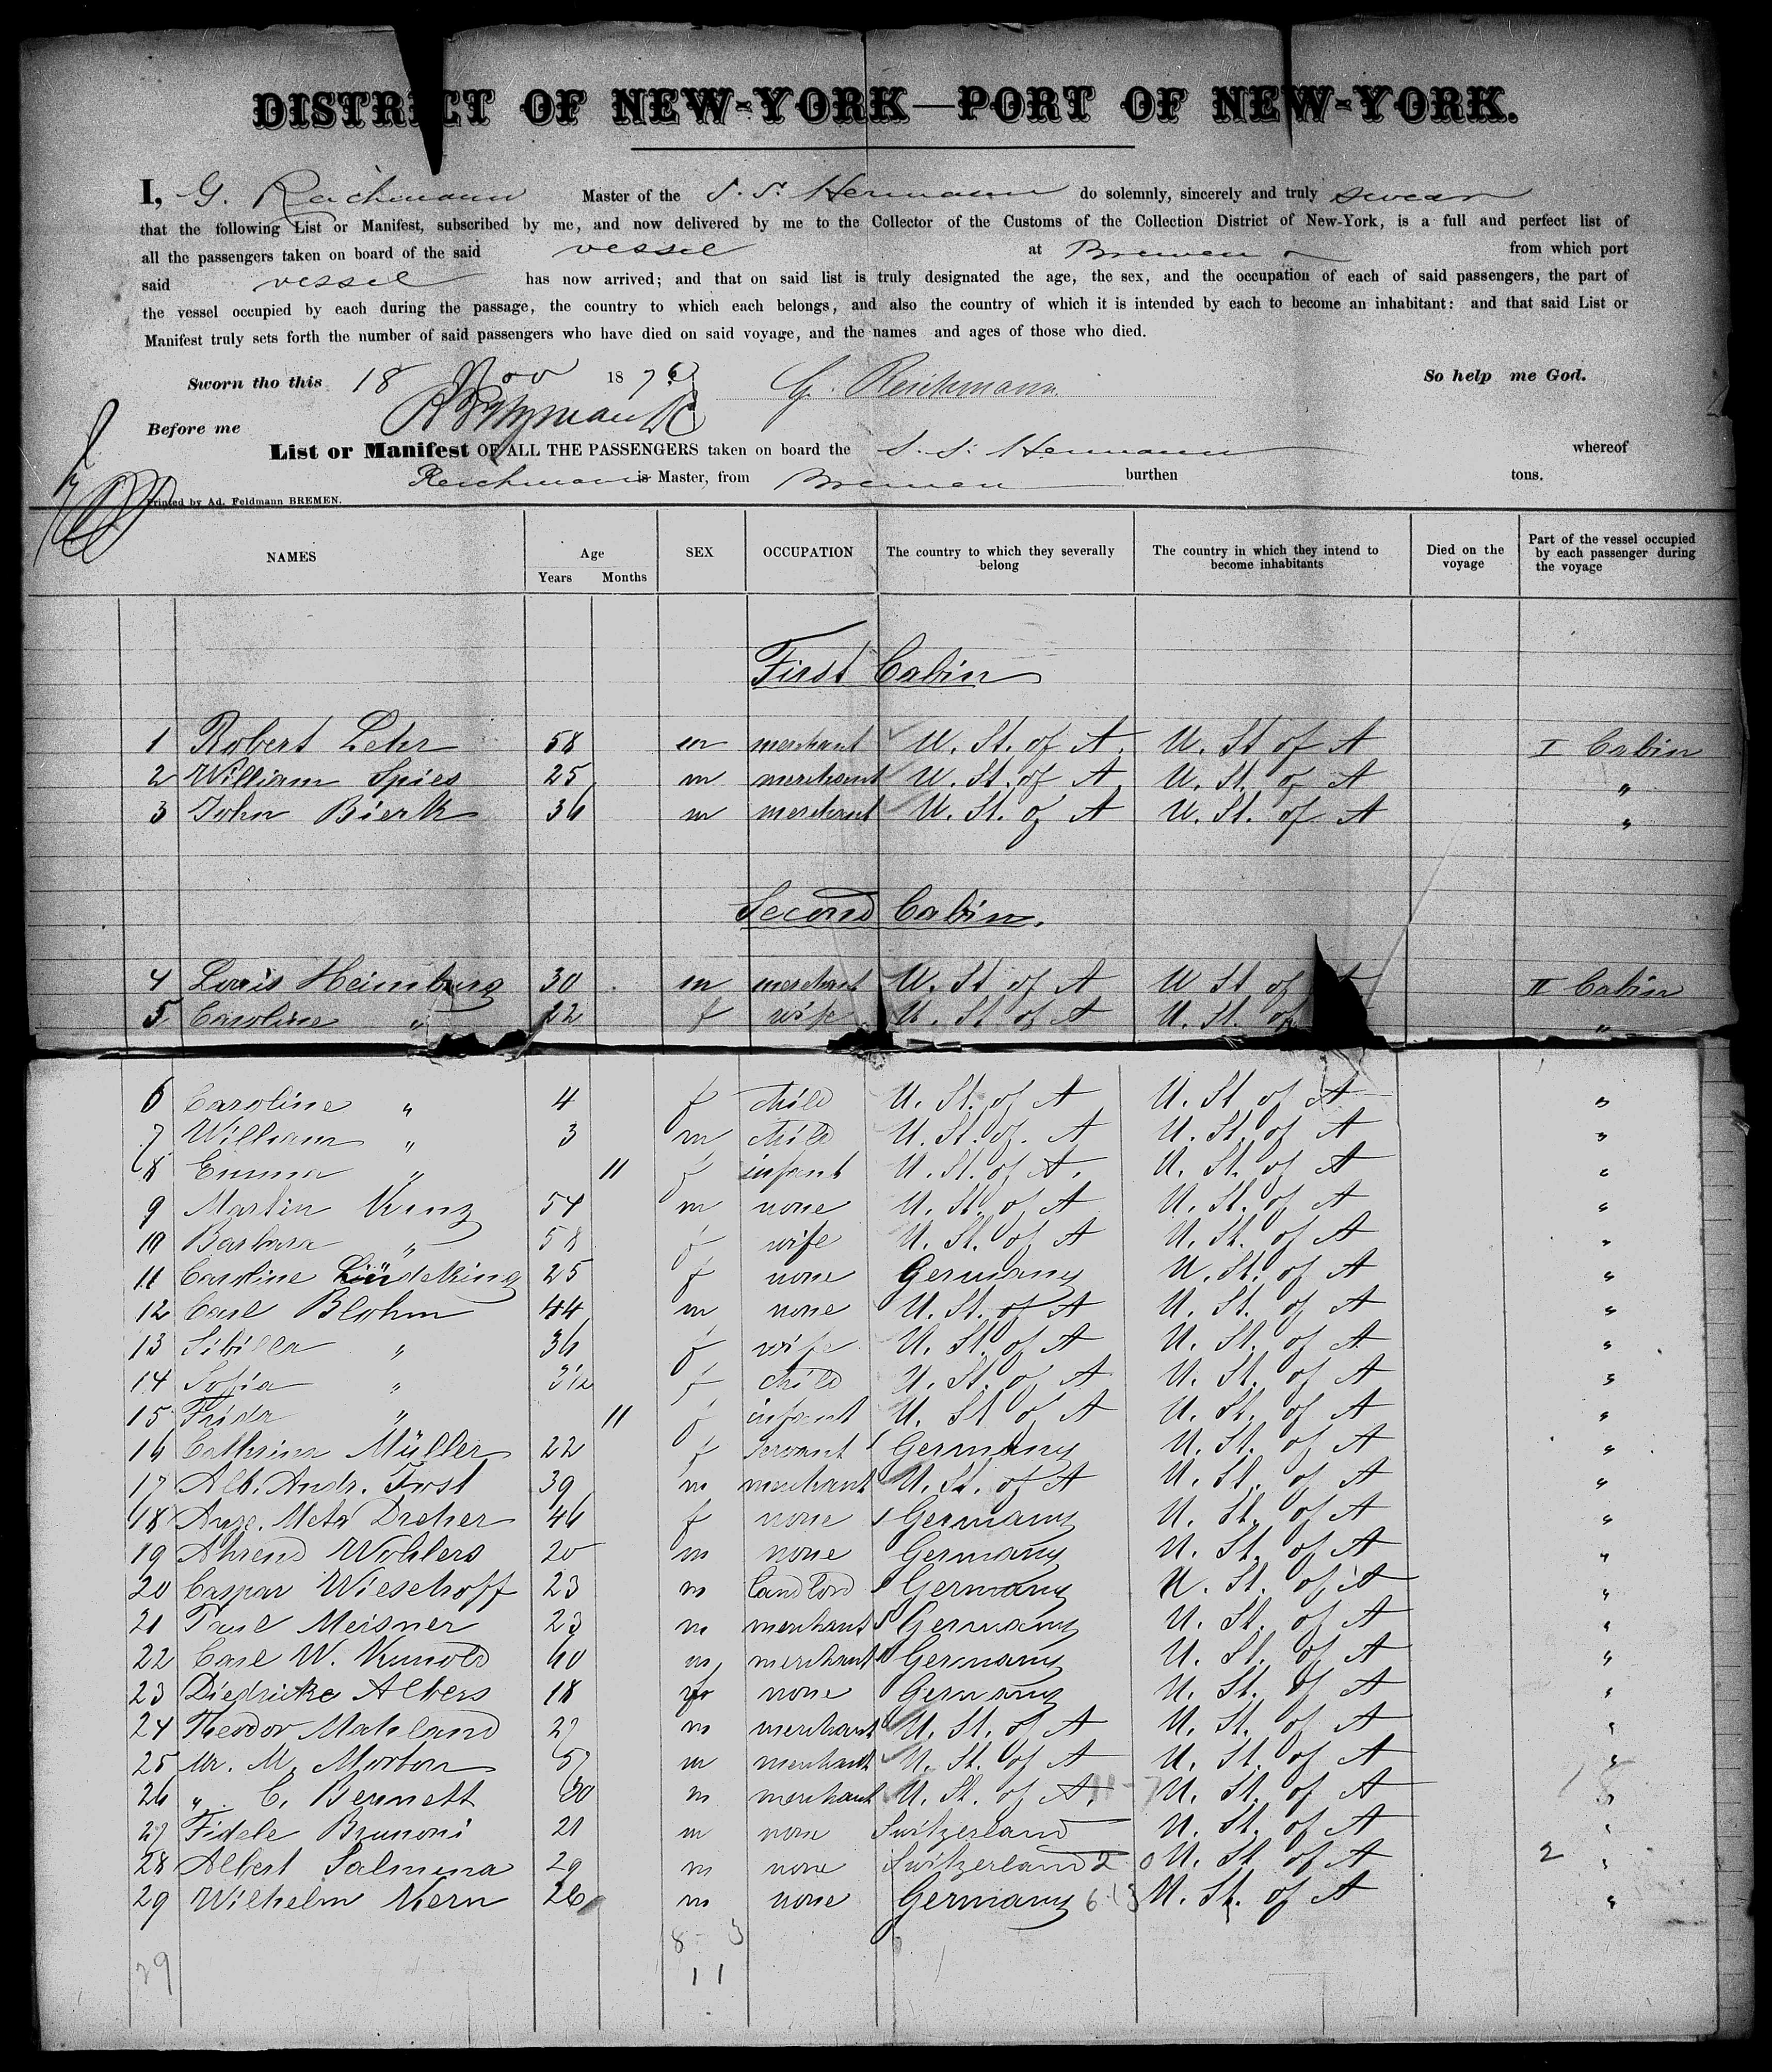 DISTRICT OF NEW-YORK—PORT OF NEW-YORK.
I, G. Reichmann Master of the S. S. Hermann do solemnly, sincerely and truly swear
that the following List or Manifest, subscribed by me, and now delivered by me to the Collector of the Customs of the Collection District of New-York, is a full and perfect list of
all the passengers taken on board of the said vessel at Bremen from which port
said vessel has now arrived; and that on said list is truly designated the age, the sex, and the occupation of each of said passengers, the part of
the vessel occupied by each during the passage, the country to which each belongs, and also the country of which it is intended by each to become an inhabitant: and that said List or
Manifest truly sets forth the number of said passengers who have died on said voyage, and the names and ages of those who died.
Sworn tho this 18 Nov 1876 G. Reichmann So help me God.
Before me
List or Manifest OF ALL THE PASSENGERS taken on board the S. S. Hermann whereof
Reichmann is Master, from Bremen burthen tons.
Printed by Ad. Feldmann BREMEN.
NAMES Age Years Months SEX OCCUPATION The country to which they severally belong The country in which they intend to become inhabitants Died on the voyage Part of the vessel occupied by each passenger during the voyage
First Cabin
1 Robert Lehr 58 m merchant U. St. of A. U. St of A I Cabin
2 William Spies 25 m merchant U. St. of A U. St. of A "
3 John Bierk 36 m merchant U. St. of A U. St. of A "
Second Cabin.
4 Louis Heimburg 30 m merchant U. St of A U St of A II Cabin
5 Caroline " 22 f wife U. St. of A U. St. of "
6 Caroline " 4 f child U. St. of A U. St of A "
7 William " 3 m child U. St. of. A U. St. of A "
8 Emma " 11 f infant U. St. of A. U. St. of A "
9 Martin Kunz 54 m none U. St. of A U. St. of A "
10 Barbara " 58 f wife U. St. of A U. St. of A "
11 Caroline Lündeking 25 f none Germany U. St. of A "
12 Carl Blohm 44 m none U. St. of A U. St. of A "
13 Sibilla " 36 f wife U. St. of A U. St. of A "
14 Sofia " 3½ f child U. St. of A U. St. of A "
15 Frida " 11 f infant U. St of A U. St. of A "
16 Cathrina Müller 22 f servant Germany U. St. of A "
17 Alb. Andr. Frost 39 m merchant U. St. of A U. St. of A "
18 Aug. Meta Dreher 46 f none Germany U. St. of A "
19 Ahrend Wohlers 20 m none Germany U. St. of A "
20 Caspar Wieschoff 23 m landlord Germany U. St. of A "
21 Paul Meisner 23 m merchant Germany U. St. of A "
22 Carl W. Kunold 40 m merchant Germany U. St. of A "
23 Diedricke Albers 18 f none Germany U. St. of A "
24 Theodor Mahland 27 m merchant U. St. of A U. St. of A "
25 Mr. M. Morton 57 m merchant U. St. of A U. St. of A "
26 " C. Bennett 60 m merchant U. St. of A. U. St. of A "
27 Fidele Brunoni 21 m none Switzerland U. St. of A "
28 Albert Salmina 29 m none Switzerland 2 0 U. St. of A 2 "
29 Wilhelm Kern 26 m none Germany U. St. of A "
29 8 3
11